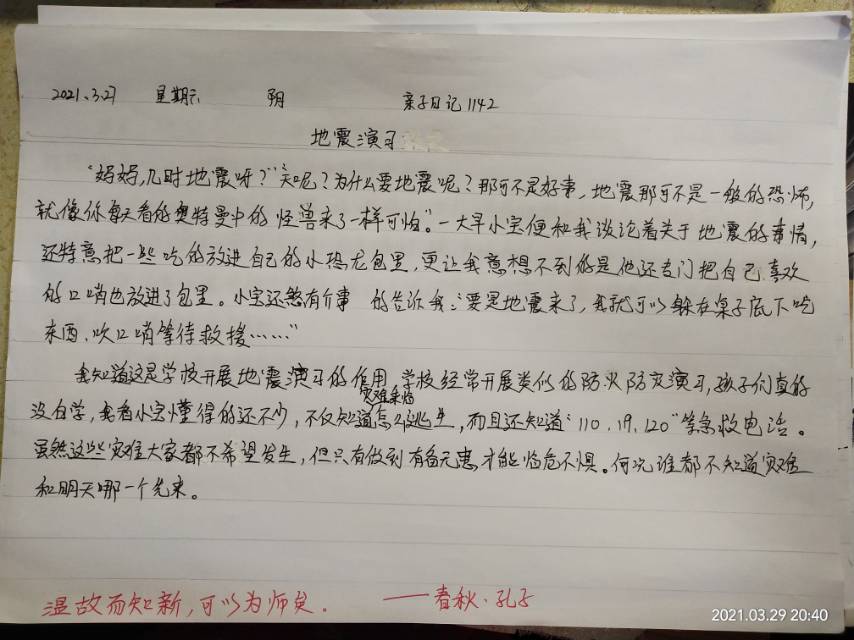 2021.3.27 星期六 阴 亲子日记1142
地震演习
“妈妈,几时地震呀?”“天呢?为什么要地震呢?那可不是好事,地震那可不是一般的恐怖,
就像你每天看的奥特曼中的怪兽来了一样可怕。”一大早小宝便和我谈论着关于地震的事情,
还特意把一些吃的放进自己的小恐龙包里,更让我意想不到的是他还专门把自己喜欢
的口哨也放进了包里。小宝还煞有介事的告诉我:“要是地震来了,我就可以躲在桌子底下吃
东西、吹口哨等待救援……”
我知道这是学校开展地震演习的作用,学校经常开展类似的防火防灾演习,孩子们真的
灾难来临
没白学,我看小宝懂得的还不少,不仅知道怎么逃生,而且还知道“110.19.120”等急救电话。
虽然这些灾难大家都不希望发生,但只有做到有备无患才能临危不惧。何况谁都不知道灾难
和明天哪一个先来。
温故而知新,可以为师矣。 ——春秋·孔子
2021.03.29 20:40